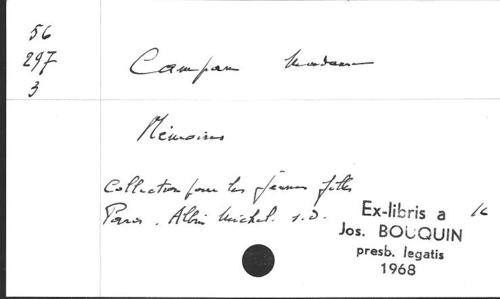 56
297
3
Campan Madame
Mémoires
Collection pour les jeunes filles
Paris. Albin Michel. s.d.
16
Ex-libris a
Jos. BOUQUIN
presb. legatis
1968